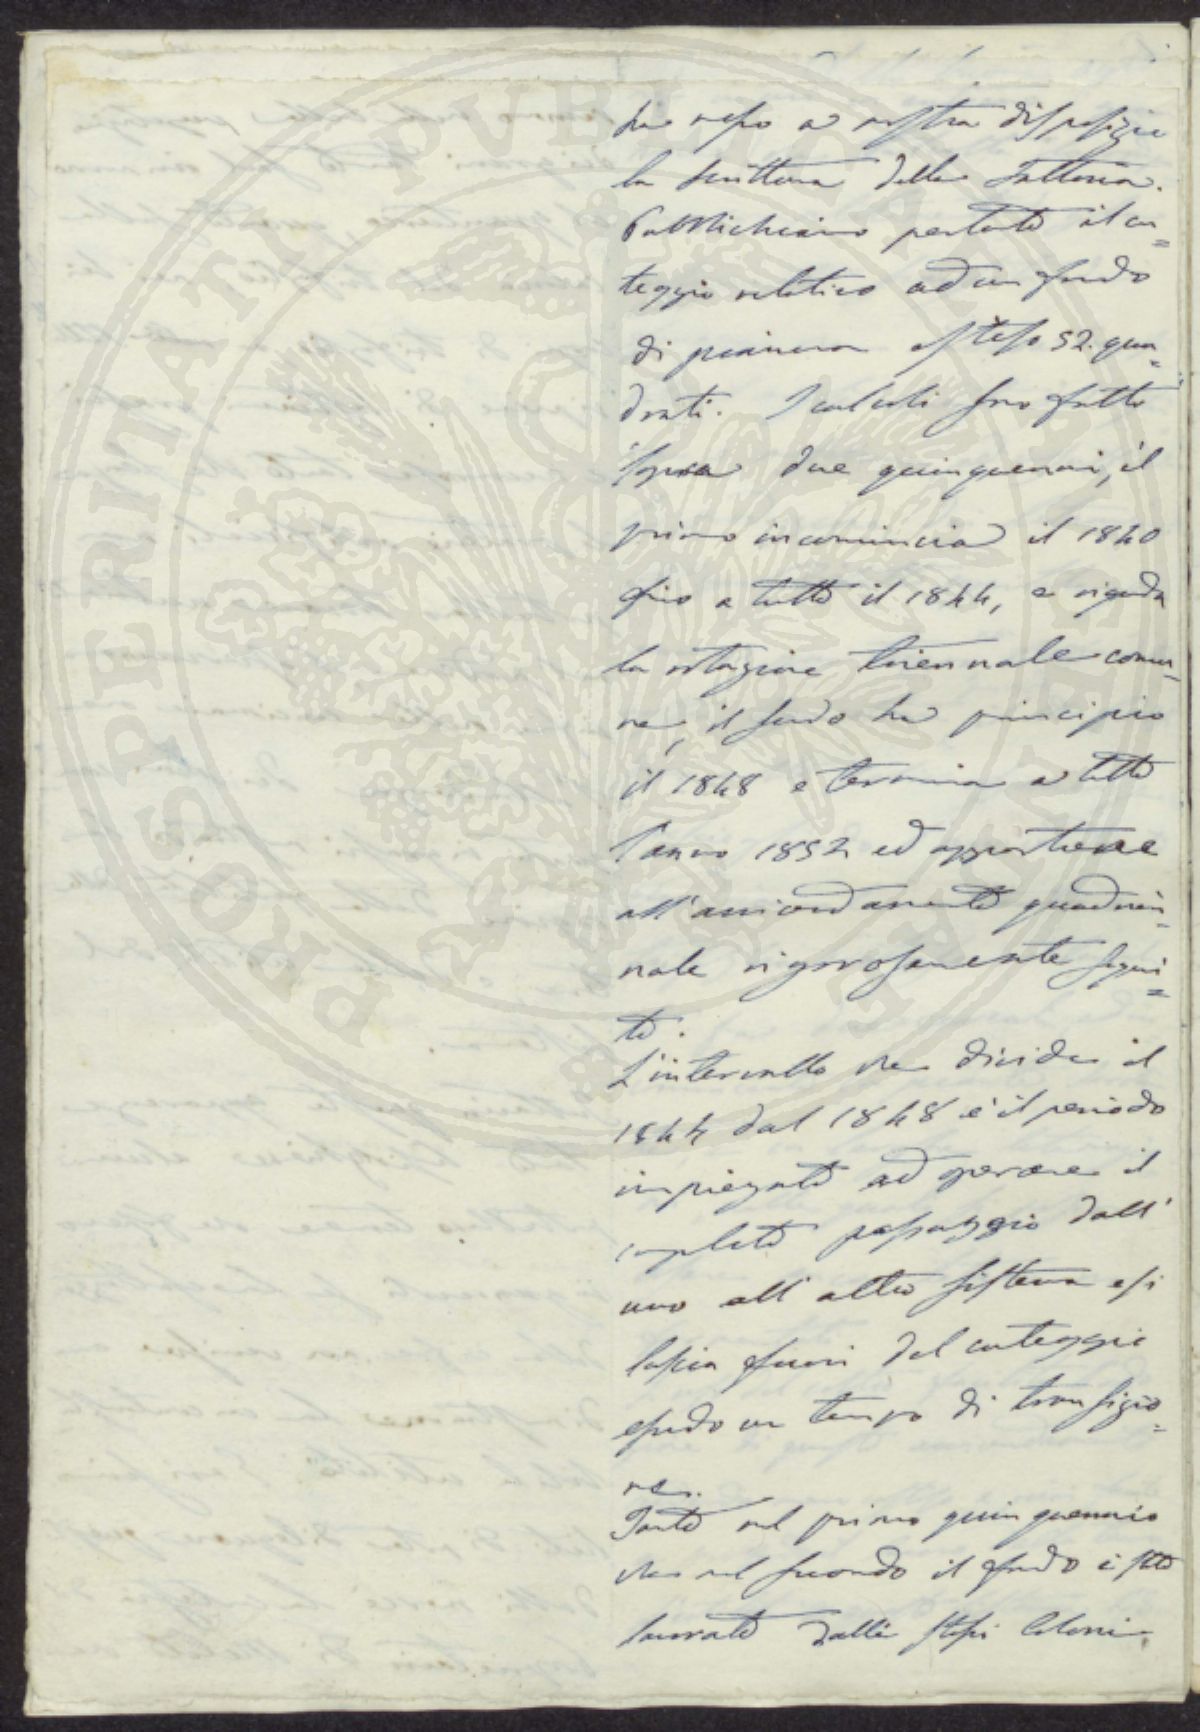 ha messo a nostra disposizione
la scrittura della Fattoria.
Pubblichiamo pertanto il con=
teggio relativo ad un fondo
di pianura esteso 52. qua=
drati. I calcoli sono fatti
sopra due quinquenni, il
primo incomincia il 1840
fino a tutto il 1844, e riguarda
la rotazione triennale comu=
ne, il secondo ha principio
il 1848 e termina a tutto
l'anno 1852 ed appartiene
all'avvicendamento quadrien=
nale rigorosamente segui=
to.
L'intervallo che divide il
1844 dal 1848 è il periodo
impiegato ad operare il
completo passaggio dall'
uno all'altro sistema e si
lascia fuori del conteggio
essendo un tempo di transizio=
ne.
Tanto nel primo quinquennio
che nel secondo il fondo è stato
lavorato dalli stessi Coloni
PROSPERITATI PVBLICAE AVGENDAE